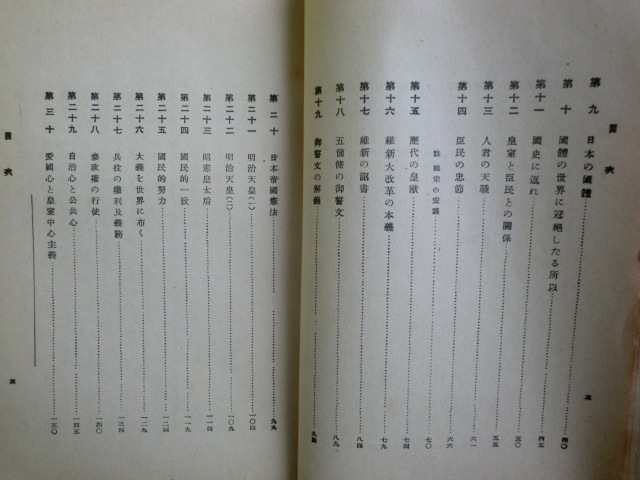 目次
第九 日本の國體
第十 國體の世界に冠絕したる所以 四〇
第十一 國史に返れ 四五
第十二 皇室と臣民との關係 五〇
第十三 人君の天職 五五
第十四 臣民の忠節 六一
六六
第十五 歷代の皇猷 七〇
第十六 維新大改革の本義 七四
第十七 維新の詔書 七九
第十八 五箇條の御誓文 八四
第十九 御誓文の解義 八九
九四
第二十 日本帝國憲法 九九
第二十一 明治天皇(一) 一〇四
第二十二 明治天皇(二) 一〇九
第二十三 昭憲皇太后 一一四
第二十四 國民的一致
第二十五 國民的努力 一二四
第二十六 大義を世界に布く 一二九
第二十七 兵役の權利及義務 一三四
第二十八 參政權の行使 一四〇
第二十九 自治心と公共心 一四五
第三十 愛國心と皇室中心主義 一五〇
目次